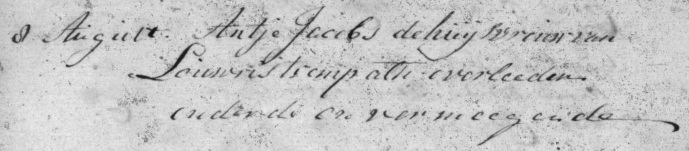 8 Augustt. Antje Jacobs de huijsvrouw van
Louwris kempatk overleeden
onder de onvermoogende